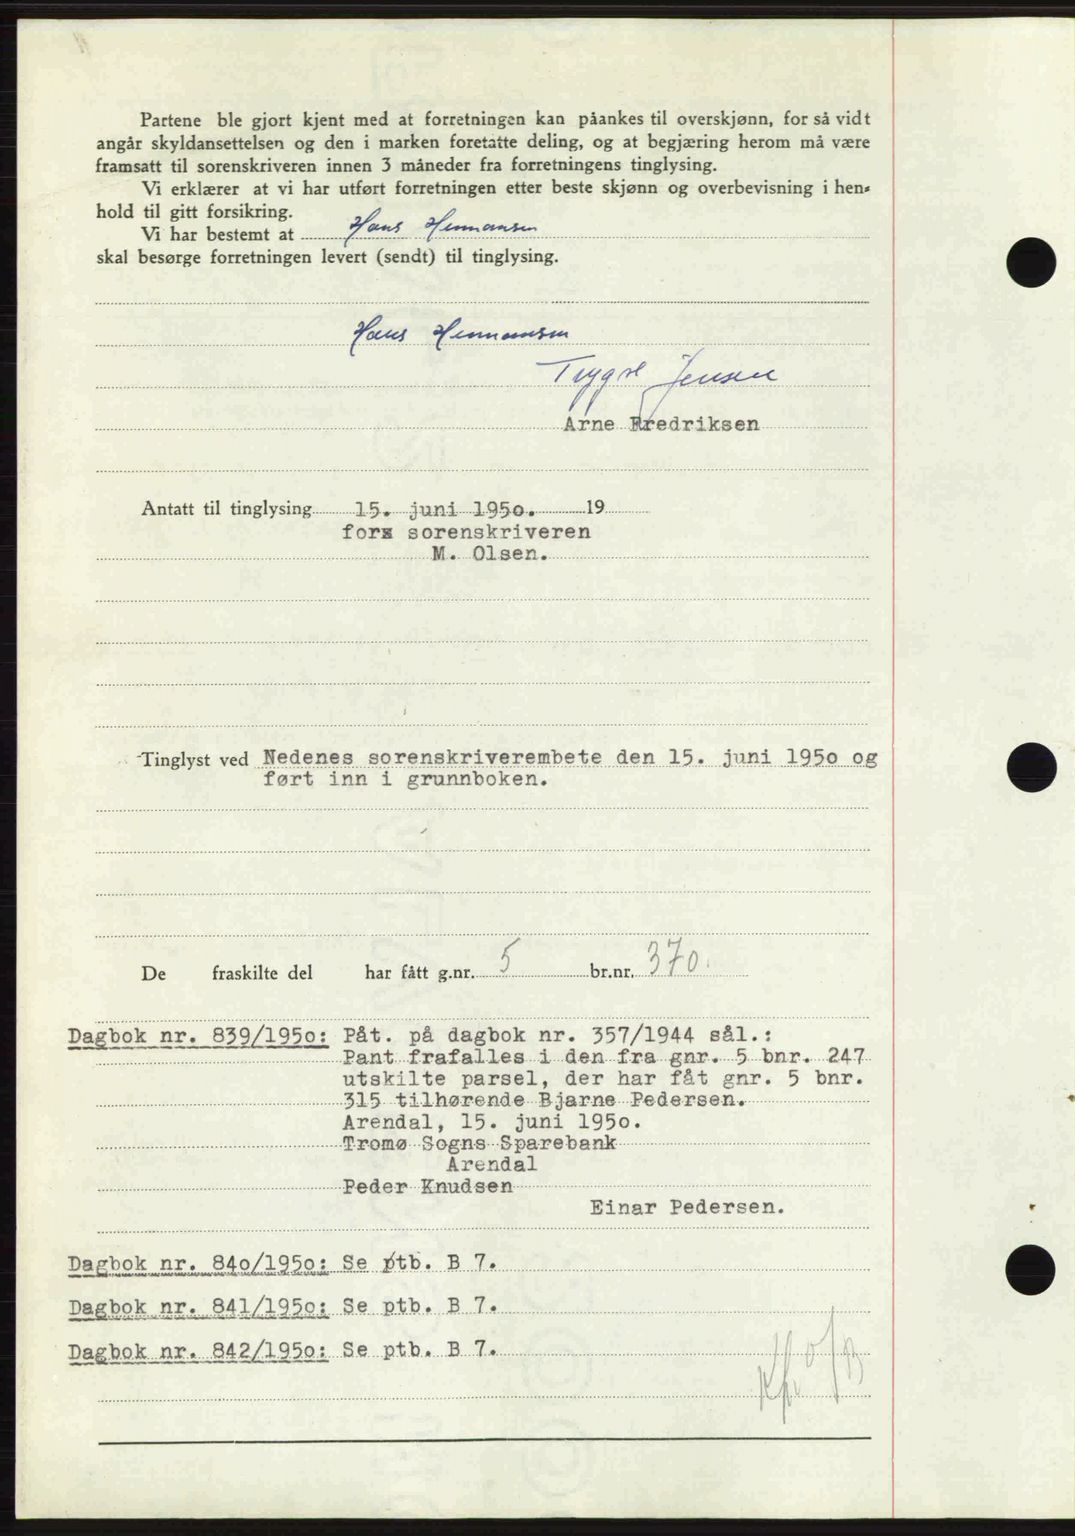 Partene ble gjort kjent med at forretningen kan påankes til overskjønn, for så vidt
angår skyldansettelsen og den i marken foretatte deling, og at begjæring herom må være
framsatt til sorenskriveren innen 3 måneder fra forretningens tinglysing.
Vi erklærer at vi har utført forretningen etter beste skjønn og overbevisning i hen-
hold til gitt forsikring.
Vi har bestemt at Hans Hermansen
skal besørge forretningen levert (sendt) til tinglysing.
Hans Hermansen
Trygve Jensen
Arne Fredriksen
Antatt til tinglysing 15. juni 1950. 19
forx sorenskriveren
M. Olsen.
Tinglyst ved Nedenes sorenskriverembete den 15. juni 1950 og
ført inn i grunnboken.
De fraskilte del har fått g.nr. 5 br.nr. 370.
Dagbok nr. 839/1950: Påt. på dagbok nr. 357/1944 sål.:
Pant frafalles i den fra gnr. 5 bnr. 247
utskilte parsel, der har fåt gnr. 5 bnr.
315 tilhørende Bjarne Pedersen.
Arendal, 15. juni 1950.
Tromø Sogns Sparebank
Arendal
Peder Knudsen
Einar Pedersen.
Dagbok nr. 840/1950: Se ptb. B 7.
Dagbok nr. 841/1950: Se ptb. B 7.
Dagbok nr. 842/1950: Se ptb. B 7.